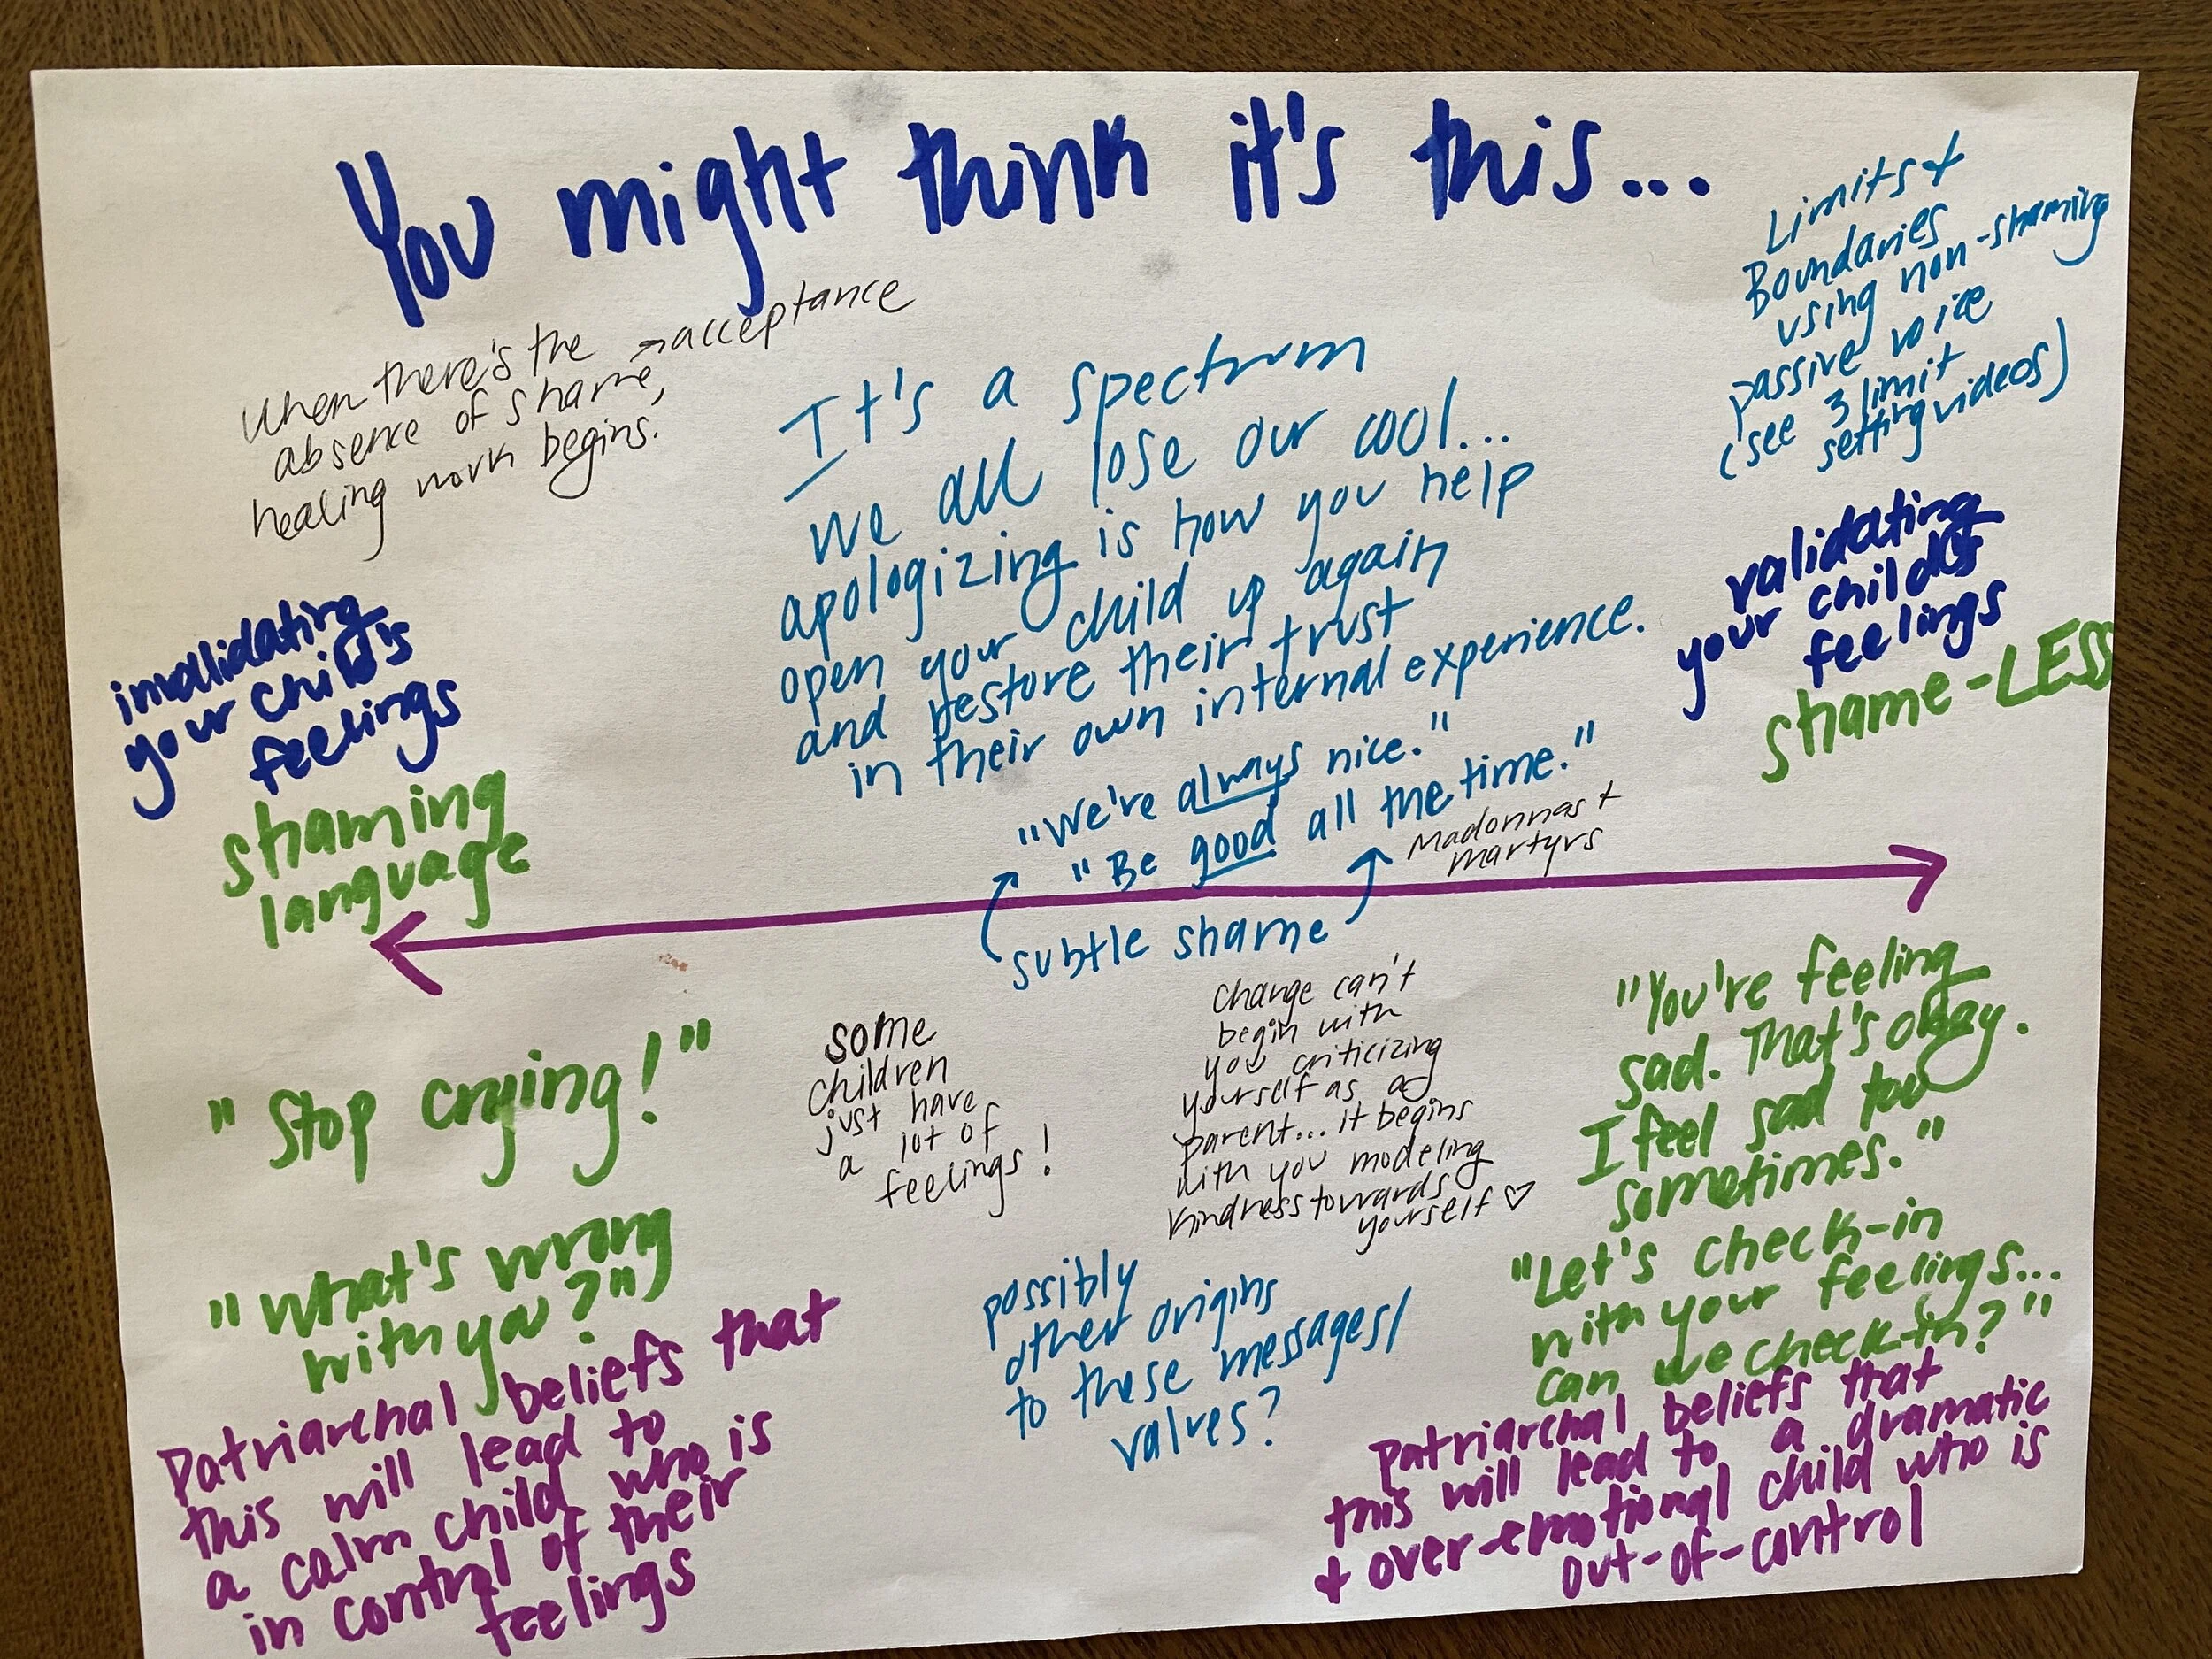 You might think it's this...
When there's the
absence of shame, → acceptance
healing work begins.
It's a spectrum
we all lose our cool...
apologizing is how you help
open your child up again
and restore their trust
in their own internal experience.
Limits +
Boundaries
using non-shaming
passive voice
(see 3 limit
setting videos)
invalidating
your child's
feelings
shaming
language
"We're always nice."
"Be good all the time."
Madonnas +
martyrs
subtle shame
validating
your child's
feelings
shame-LESS
"Stop crying!"
"What's wrong
with you?"
Patriarchal beliefs that
this will lead to
a calm child who is
in control of their
feelings
some
children
just have
a lot of
feelings!
change can't
begin with
you criticizing
yourself as a
parent... it begins
with you modeling
kindness towards
yourself ♡
possibly
other origins
to these messages/
values?
"You're feeling
sad. That's okay.
I feel sad too
sometimes."
"Let's check-in
with your feelings...
can we check-in?"
patriarchal beliefs that
this will lead to a dramatic
+ over-emotional child who is
out-of-control